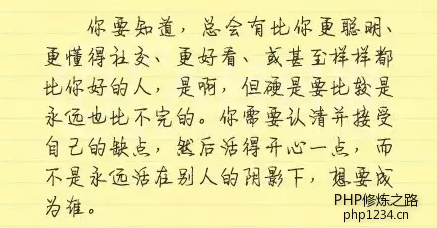 你要知道，总会有比你更聪明、
更懂得社交、更好看、或甚至样样都
比你好的人，是啊，但硬是要比较是
永远也比不完的。你需要认清并接受
自己的缺点，然后活得开心一点，而
不是永远活在别人的阴影下，想要成
为谁。
PHP修炼之路
php1234.cn